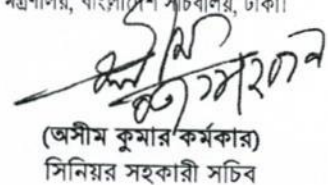 বাংলাদেশ সচিবালয়, ঢাকা।
(অসীম কুমার কর্মকার)
সিনিয়র সহকারী সচিব